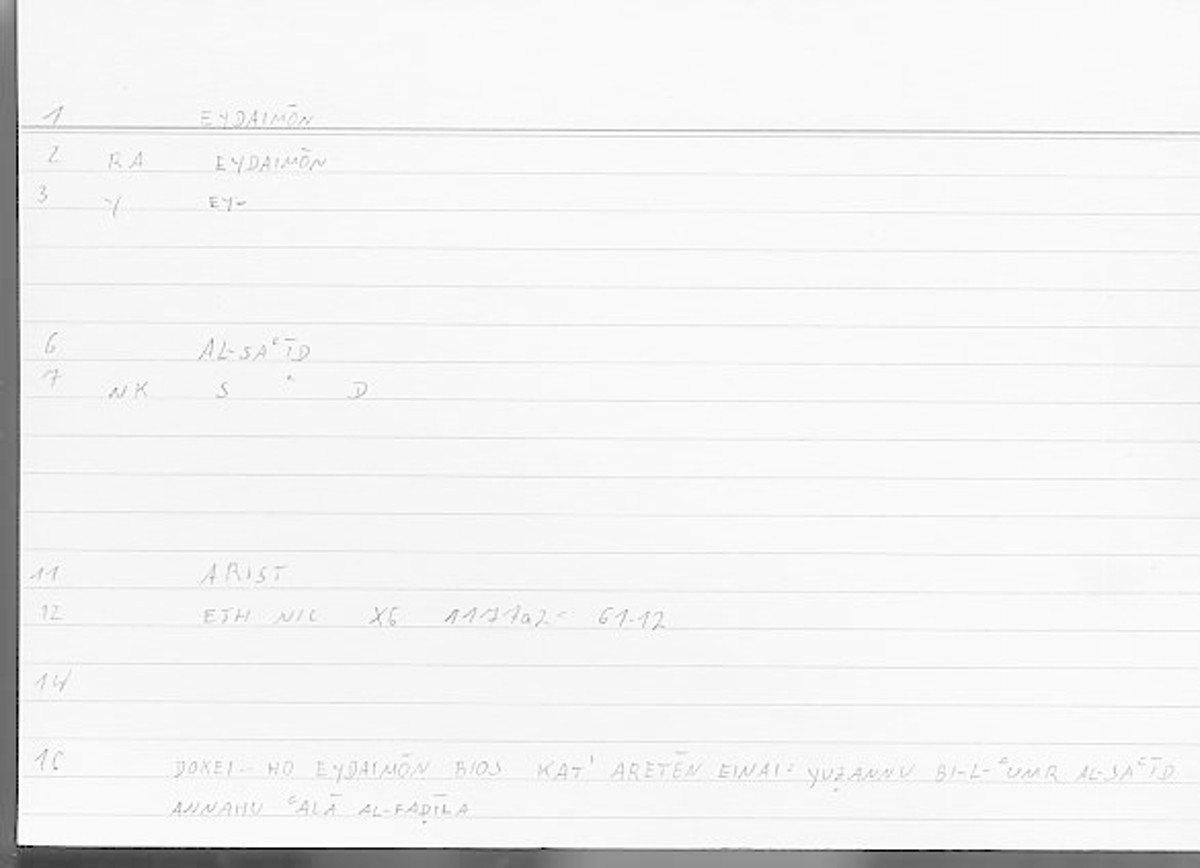 1 EYDAIMŌN
2 RA EYDAIMŌN
3 Y EY-
6 AL-SAʿĪD
7 NK S ʿ D
11 ARIST
12 ETH NIC X6 1177a2= 61.12
14
16 DOKEI.. HO EYDAIMŌN BIOS KAT' ARETĒN EINAI: YUẒANNU BI-L-ʿUMR AL-SAʿĪD
ANNAHU ʿALĀ AL-FAḌĪLA